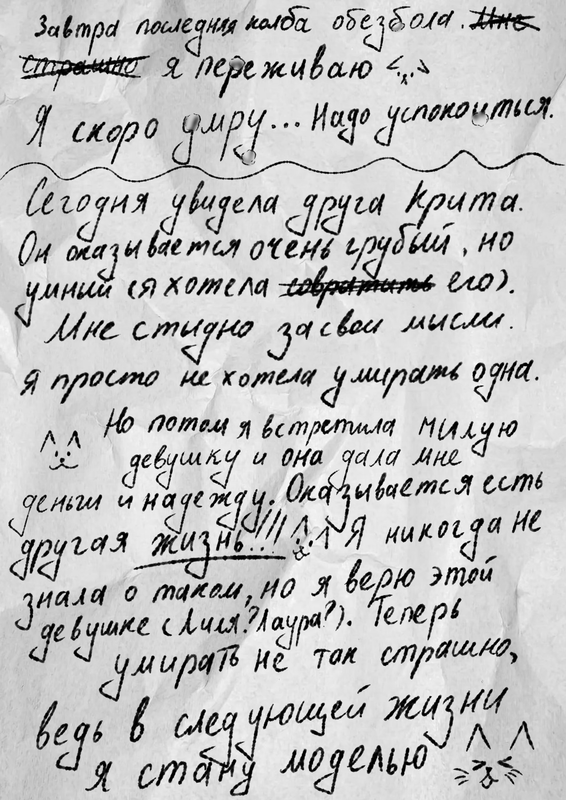 Завтра последняя колба обезбола. Мне
страшно я переживаю
Я скоро умру... Надо успокоиться.
Сегодня увидела друга Крита.
Он оказывается очень грубый, но
умный (я хотела совратить его).
Мне стидно за свои мысли.
Я просто не хотела умирать одна.
Но потом я встретила милую
девушку и она дала мне
деньги и надежду. Оказывается есть
другая жизнь!!! Я никогда не
знала о таком, но я верю этой
девушке (Лиля? Лаура?). Теперь
умирать не так страшно,
ведь в следующей жизни
я стану моделью